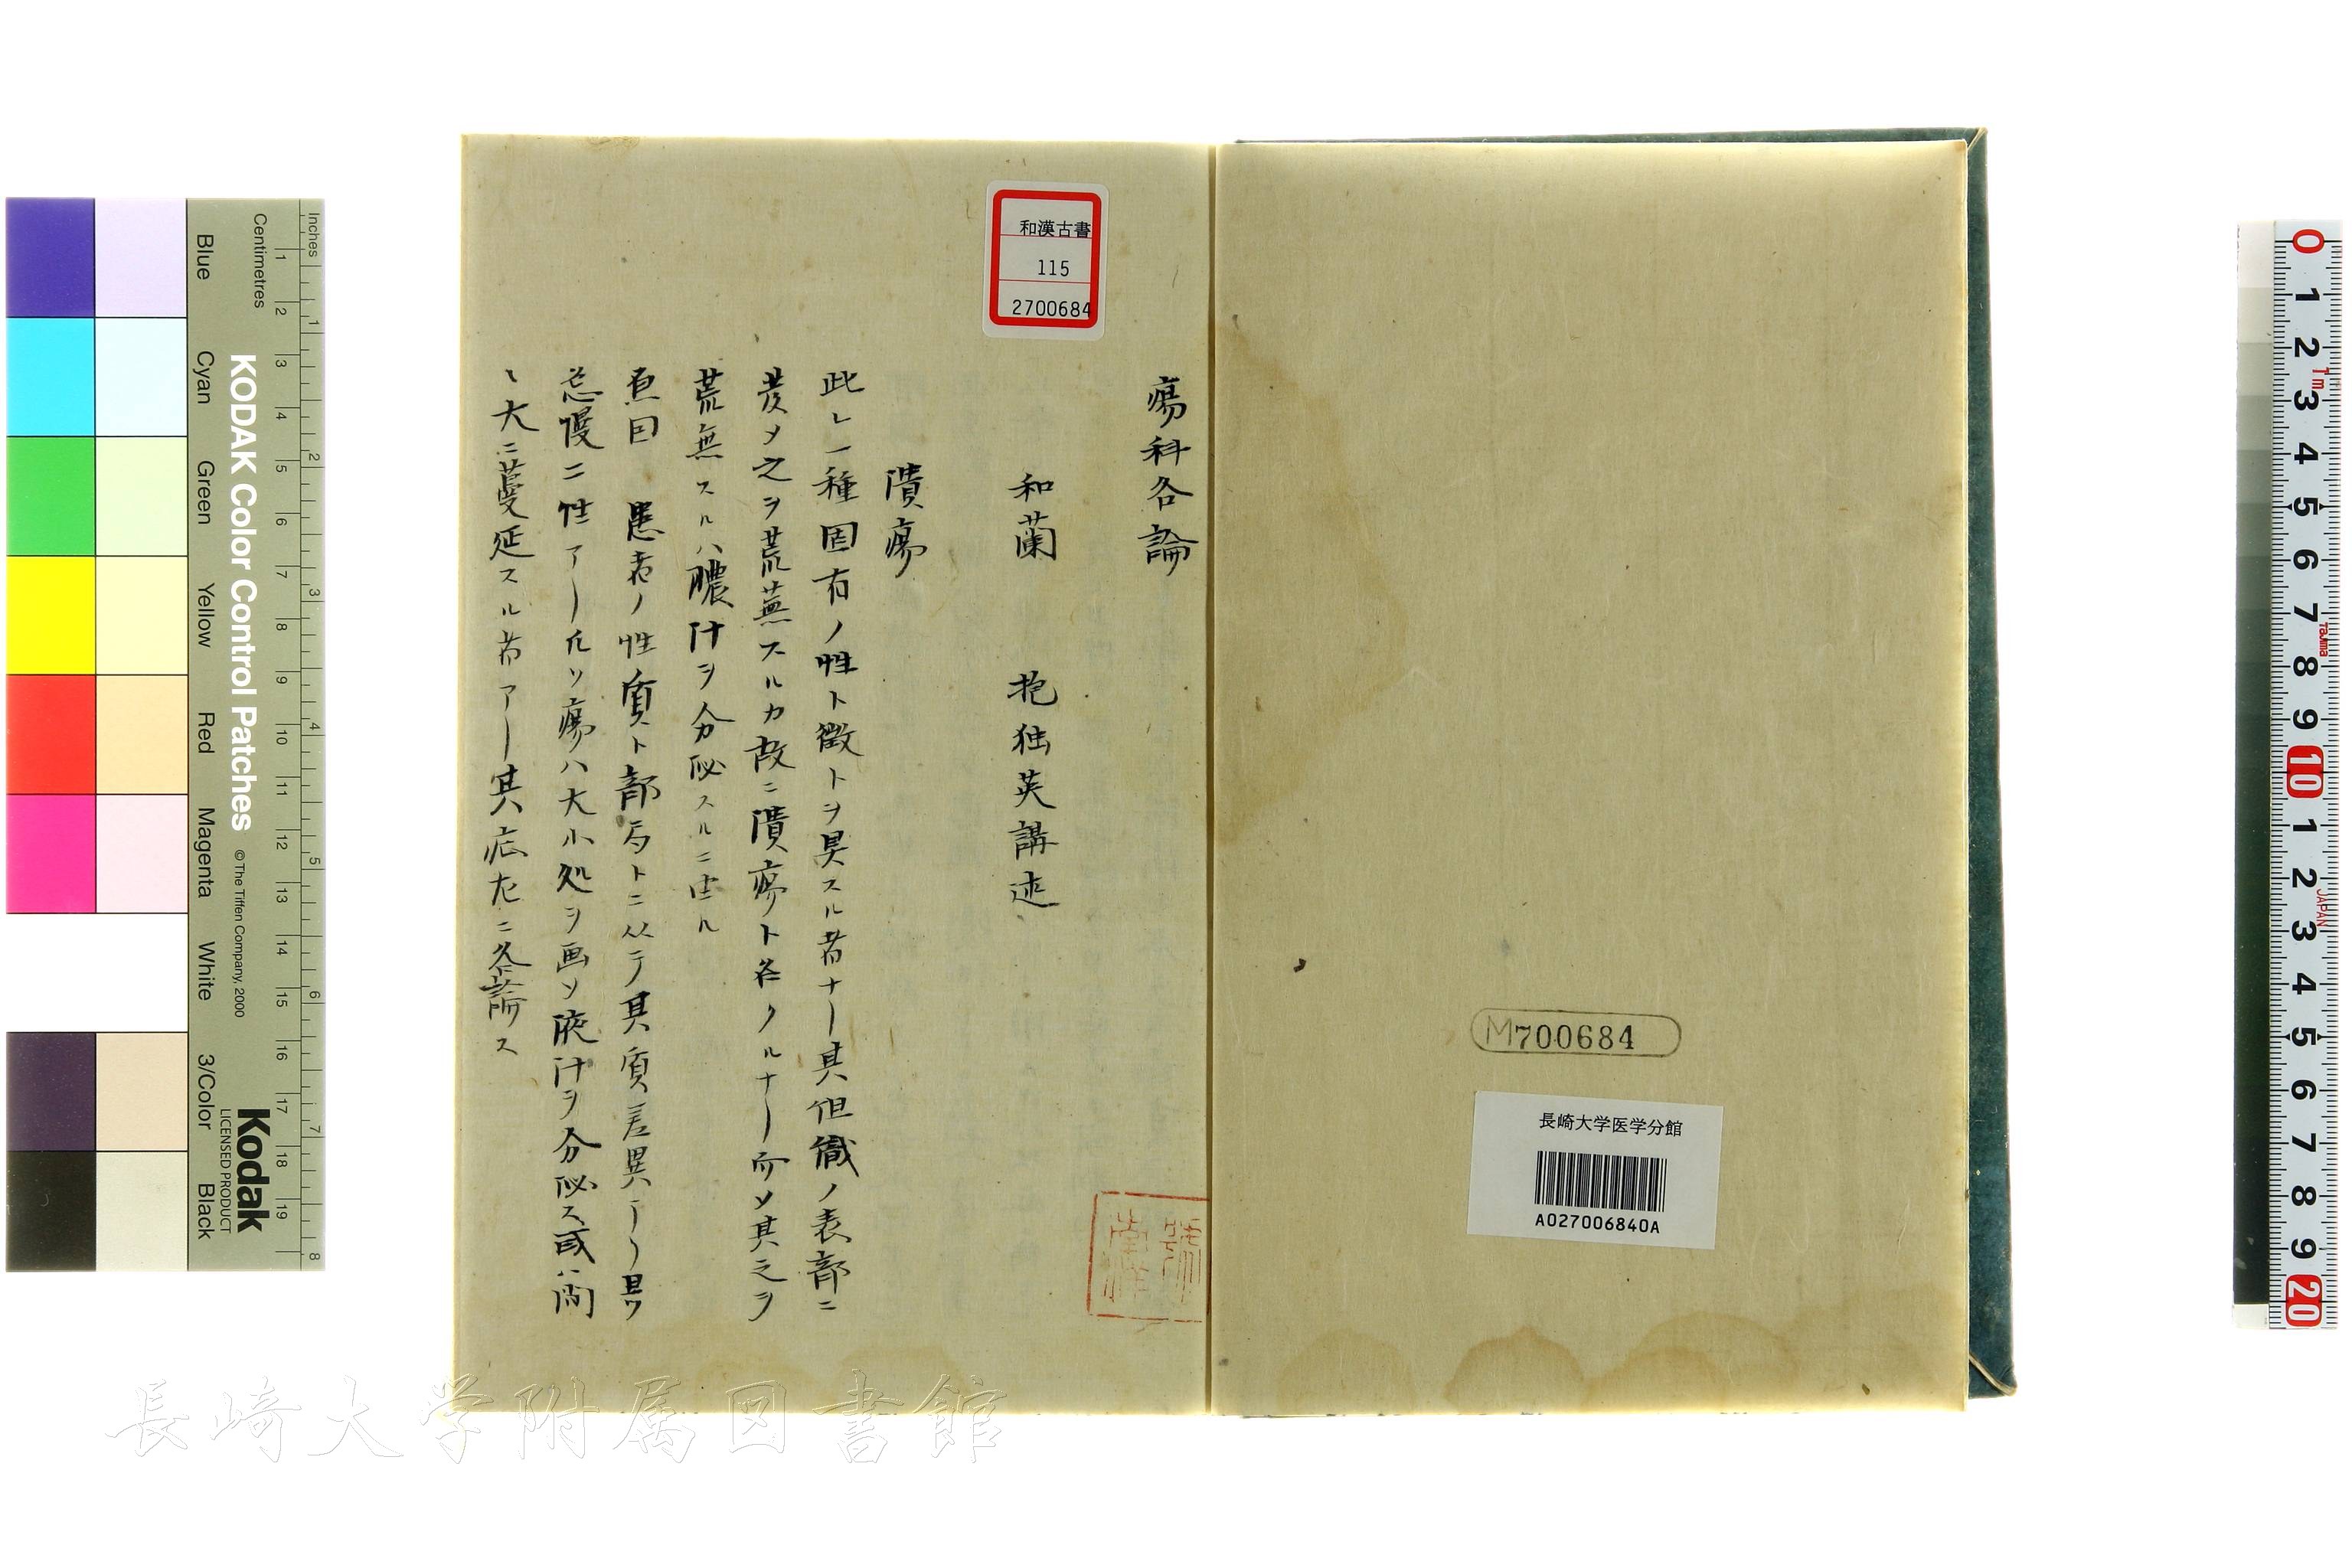 瘍科各論
和蘭 抱独英講述
潰瘍
此レ一種固有ノ性ト徴トヲ具スル者ナー其但織ノ表部ニ
発メ之ヲ荒蕪スルカ故ニ潰瘍ト名クルナー而メ其之ヲ
荒無スルハ膿汁ヲ分泌スルニ由ル
患者ノ性質ト部トニ从テ其質差異
慢二性アー凡ソ瘍ハ大小処ヲ画メ液汁ヲ分泌ス或ハ間
大ニ蔓延スル者アー其症左ニ各論ス
和漢古書
115
2700684
M700684
長崎大学医学分館
A027006840A
長崎大学附属図書館
KODAK Color Control Patches
© The Tiffen Company, 2000
Kodak
LICENSED PRODUCT
Inches
Centimetres
Blue
Cyan
Green
Yellow
Red
Magenta
White
3/Color
Black
1 2 3 4 5 6 7 8
1 2 3 4 5 6 7 8 9 10 11 12 13 14 15 16 17 18 19
0 1 2 3 4 5 6 7 8 9 10 1 2 3 4 5 6 7 8 9 20
1m
Tajima
JAPAN